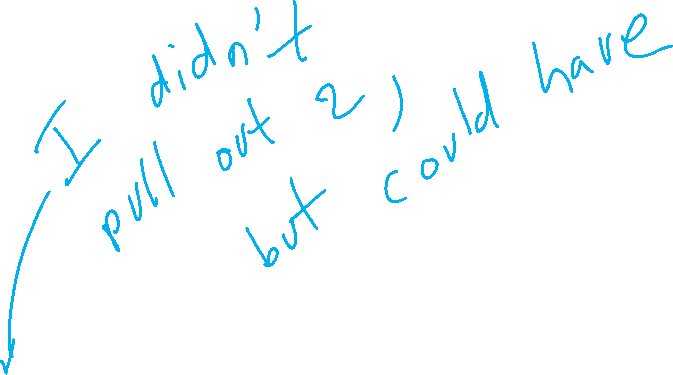 I didn't
pull out 2,
but could have